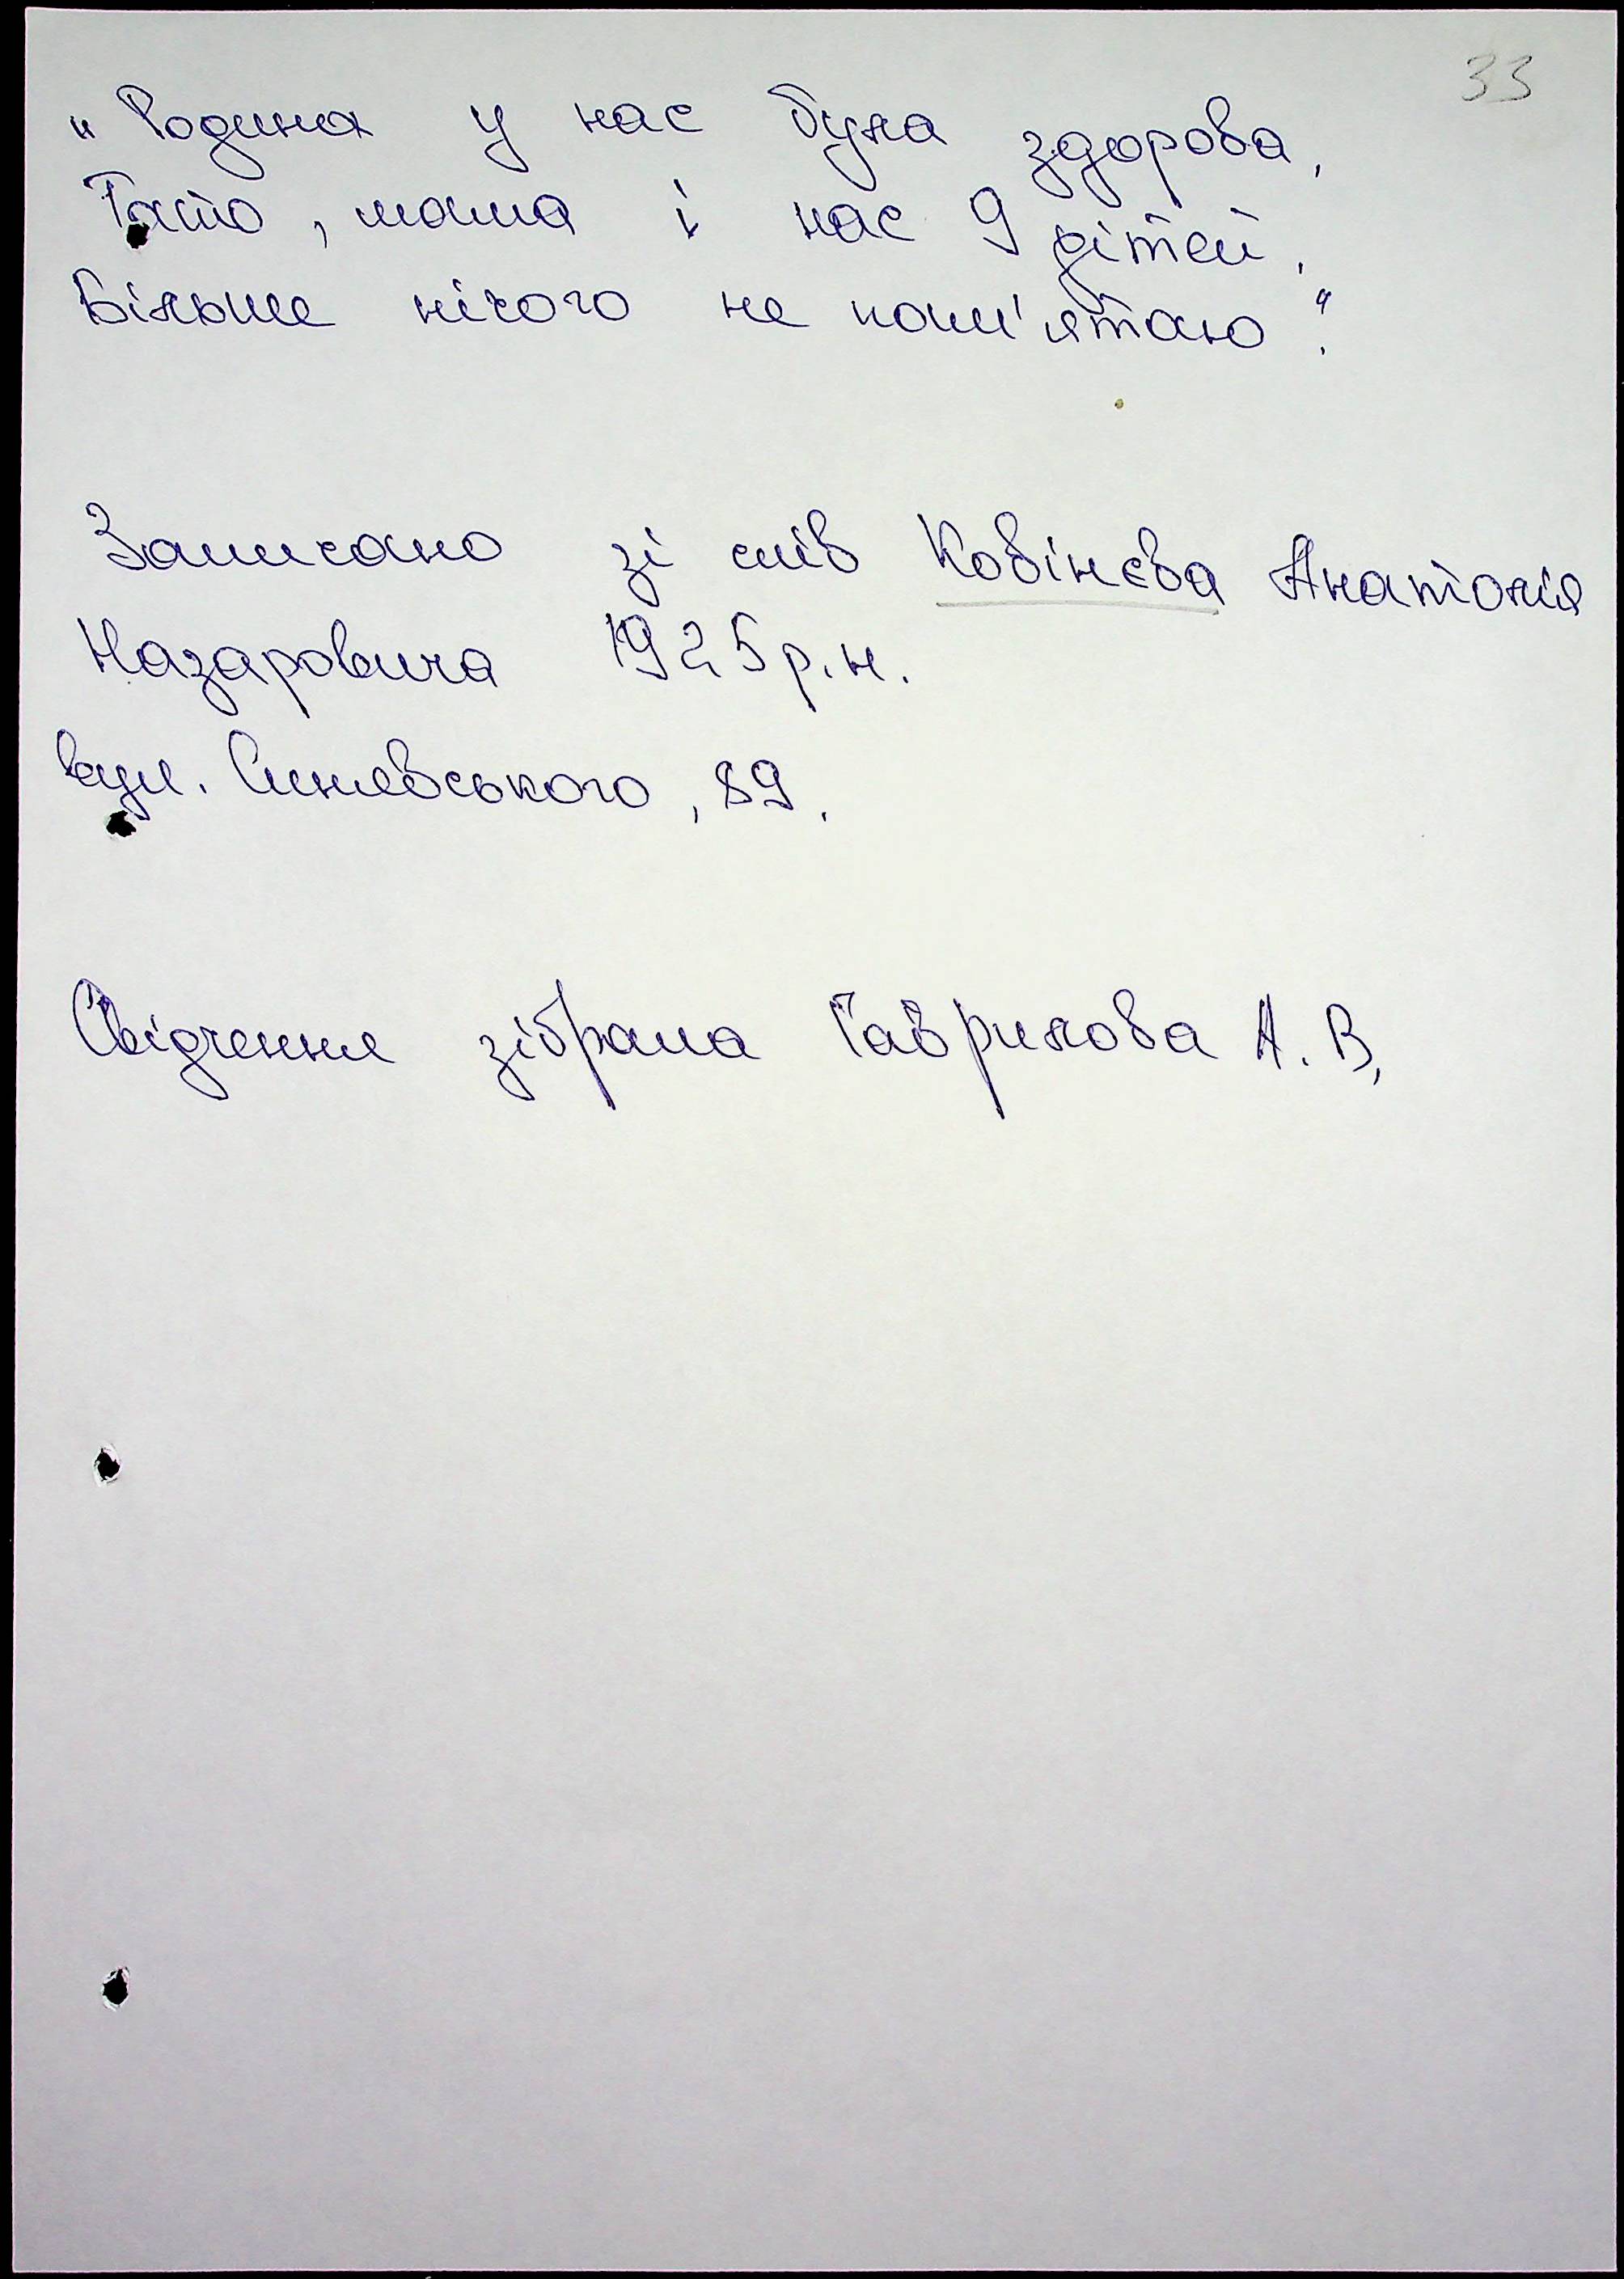 33
„Родина у нас була здорова,
Тато, мама і нас 9 дітей,
Більше нічого не пам'ятаю“.
Записано зі слів Ковінєва Анатолія
Назаровича 1925 р.н.
вул. Синявського, 89.
Свідчення зібрала Гаврилова А. В,